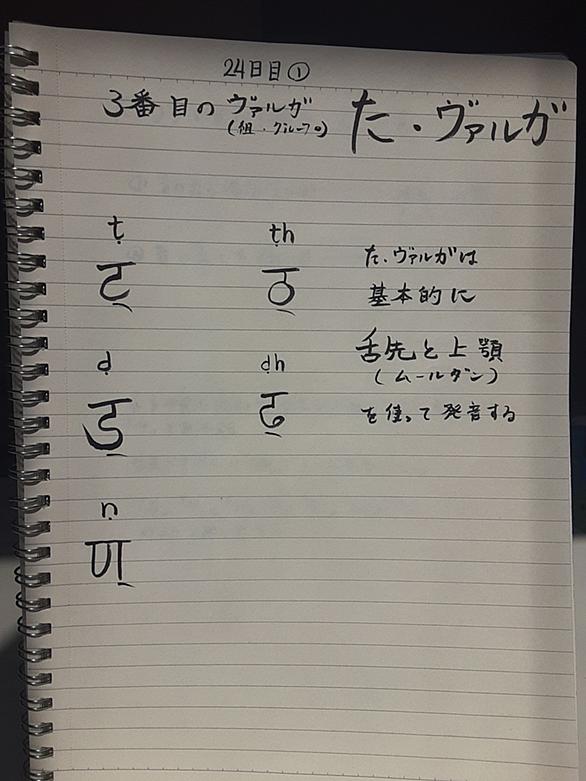 24日目①
3番目のヴァルガ
(組・グループ)
た・ヴァルガ
ṭ ṭh
ट् ठ्
ḍ ḍh
ड् ढ्
ṇ
ण्
た・ヴァルガは
基本的に
舌先と上顎
(ムールダン)
を使って発音する